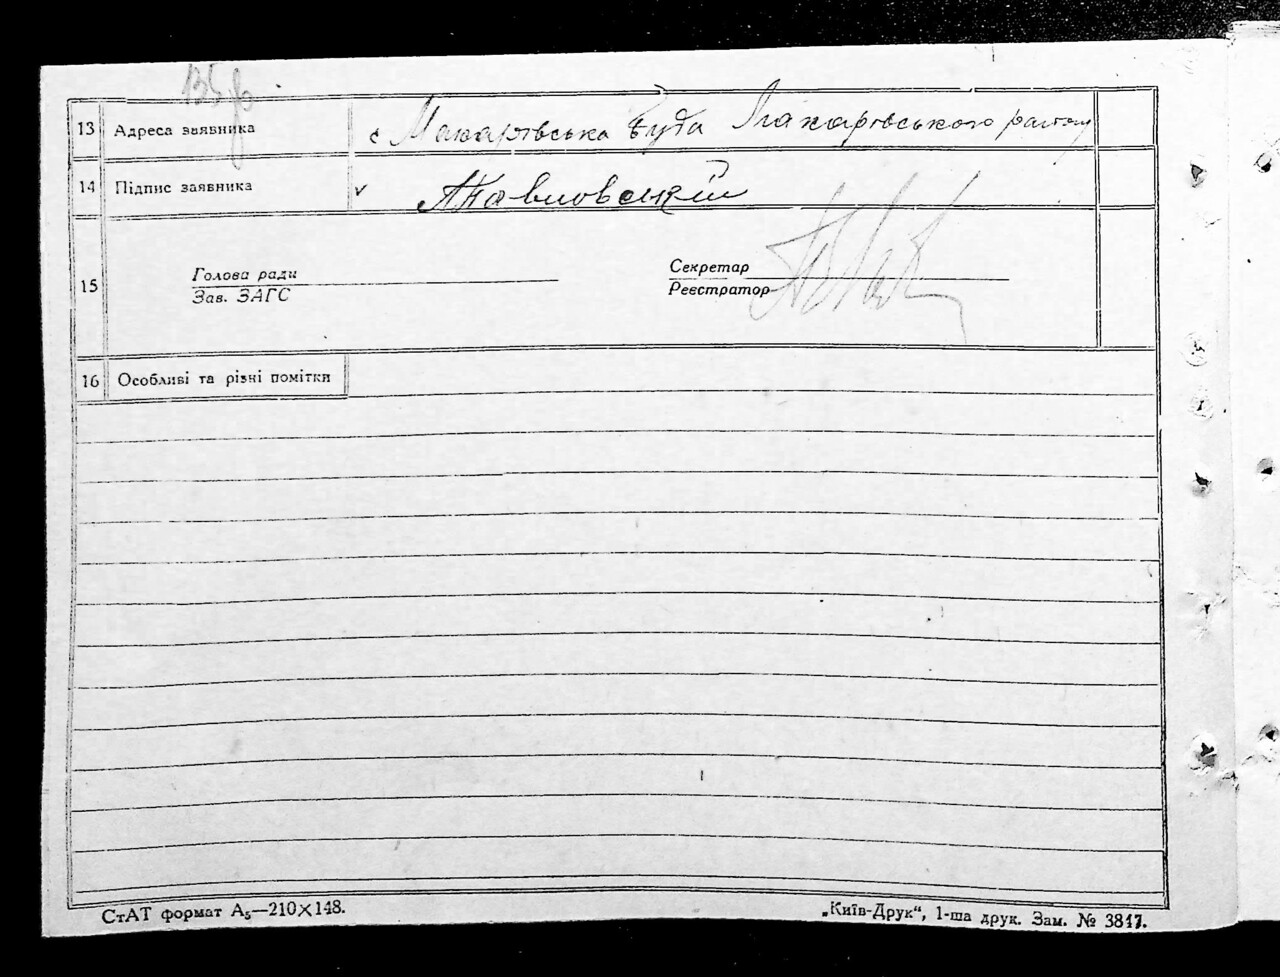 13 Адреса заявника с Макарівська Буда Макарівського району
14 Підпис заявника v АПавловський
15 Голова ради
Зав. ЗАГС
Секретар
Реєстратор
16 Особливі та різні помітки
СтАТ формат А₅—210×148.
„Київ-Друк“, 1-ша друк. Зам. № 3817.